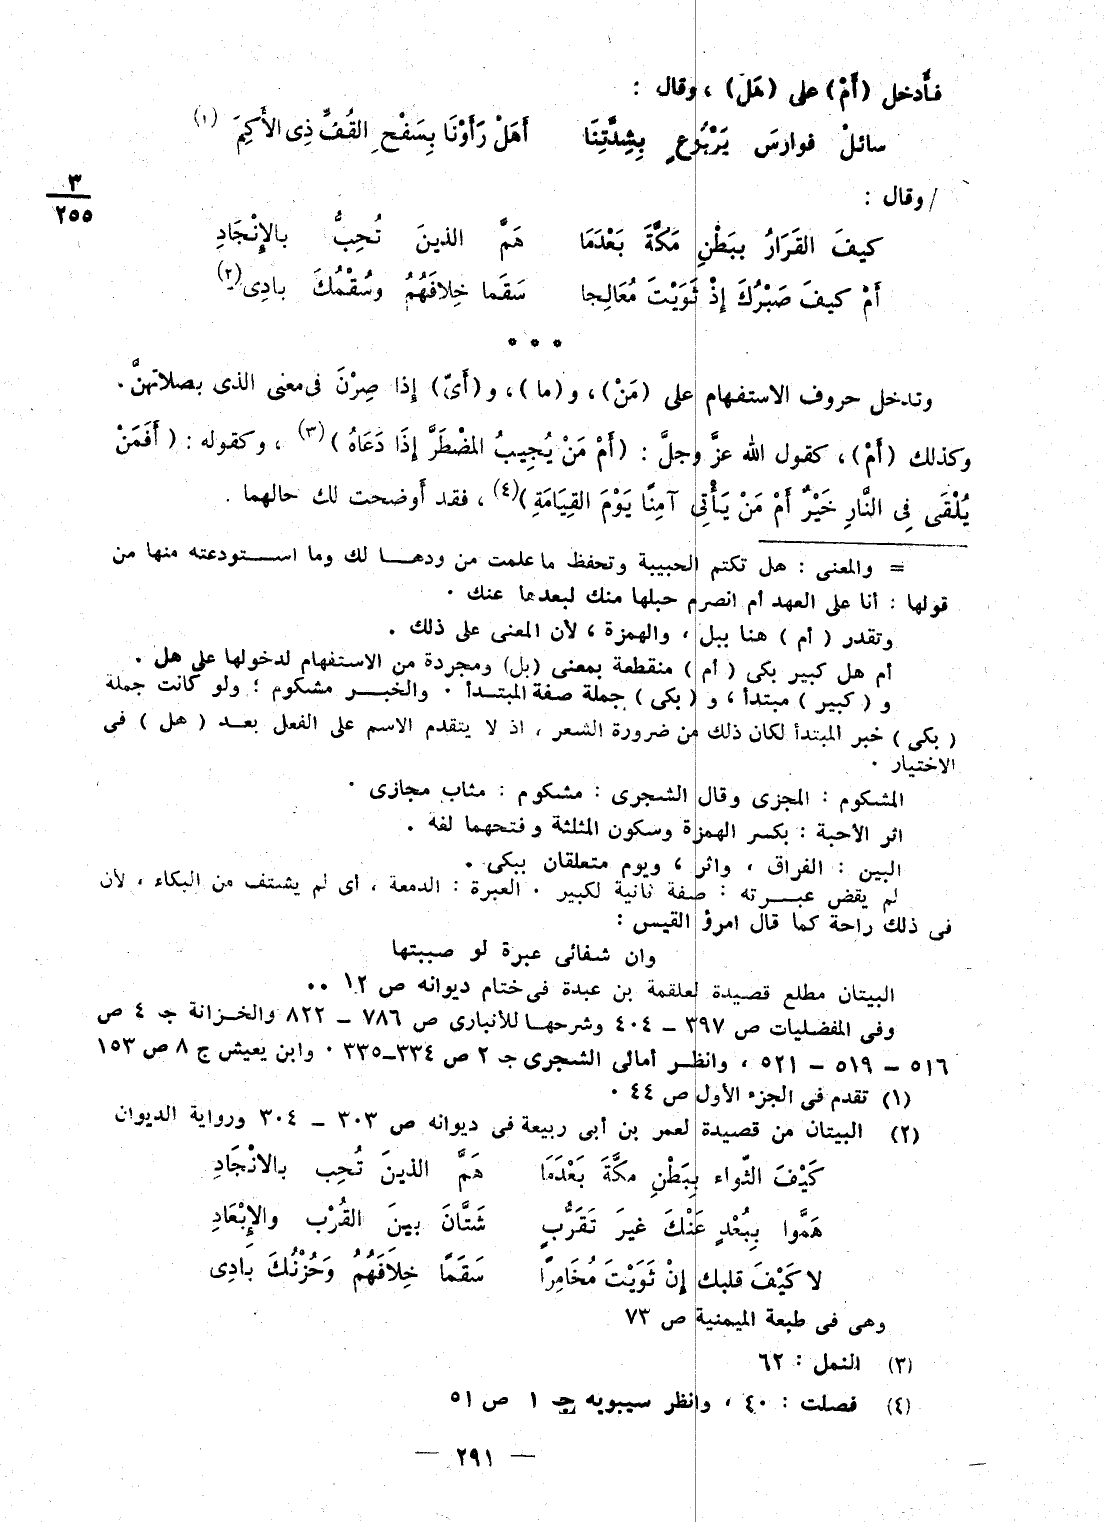 فأدخل (أَمْ) على (هَلْ) ، وقال :
سائلْ فوارسَ يَرْبُوعٍ بِشِدَّتِنَا أَهَلْ رَأَوْنَا بِسَفْحِ القُفِّ ذِى الأَكَمِ (١)
٣
٢٥٥
/ وقال :
كيفَ القَرَارُ بِبَطْنِ مَكَّةَ بَعْدَمَا هَمَّ الذينَ تُحِبُّ بالإِنْجَادِ
أَمْ كيفَ صَبْرُكَ إِذْ ثَوَيْتَ مُعَالِجا سَقَما خِلافَهُمُ وسُقْمُكَ بادِى (٢)
* * *
وتدخل حروف الاستفهام على (مَنْ) ، و (ما) ، و (أَىّ) إِذا صِرْنَ فى معنى الذى بصلاتهنَّ .
وكذلك (أَمْ) ، كقول الله عزَّ وجلَّ : (أَمْ مَنْ يُجِيبُ المُضْطَرَّ إِذَا دَعَاهُ) (٣) ، وكقوله : (أَفَمَنْ
يُلْقَى فِى النَّارِ خَيْرٌ أَمْ مَنْ يَأْتِى آمِنًا يَوْمَ القِيَامَةِ) (٤) ، فقد أَوضحت لك حالهما .
= والمعنى : هل تكتم الحبيبة وتحفظ ما علمت من ودهـا لك وما استودعته منها من
قولها : أنا على العهد أم انصرم حبلها منك لبعدها عنك .
وتقدر ( أم ) هنا ببل ، والهمزة ، لأن المعنى على ذلك .
أم هل كبير بكى ( أم ) منقطعة بمعنى (بل) ومجردة من الاستفهام لدخولها على هل .
و ( كبير ) مبتدأ ، و ( بكى ) جملة صفة المبتدأ . والخبر مشكوم ؛ ولو كانت جملة
( بكى ) خبر المبتدأ لكان ذلك من ضرورة الشعر ، اذ لا يتقدم الاسم على الفعل بعد ( هل ) فى
الاختيار .
المشكوم : المجزى وقال الشجرى : مشكوم : مثاب مجازى .
اثر الأحبة : بكسر الهمزة وسكون المثلثة وفتحهما لغة .
البين : الفراق ، واثر ، ويوم متعلقان ببكى .
لم يقض عبرته : صفة ثانية لكبير . العبرة : الدمعة ، أى لم يشتف من البكاء ، لأن
فى ذلك راحة كما قال امرؤ القيس :
وان شفائى عبرة لو صببتها
البيتان مطلع قصيدة لعلقمة بن عبدة فى ختام ديوانه ص ١٢ ..
وفى المفضليات ص ٣٩٧ – ٤٠٤ وشرحها للأنبارى ص ٧٨٦ – ٨٢٢ والخزانة جـ ٤ ص
٥١٦ – ٥١٩ – ٥٢١ ، وانظر أمالى الشجرى جـ ٢ ص ٣٣٤–٣٣٥ . وابن يعيش ج ٨ ص ١٥٣
(١) تقدم فى الجزء الأول ص ٤٤ .
(٢) البيتان من قصيدة لعمر بن أبى ربيعة فى ديوانه ص ٣٠٣ – ٣٠٤ ورواية الديوان
كَيْفَ الثّواء بِبَطْنِ مكَّةَ بَعْدَمَا هَمَّ الذينَ تُحِب بالانْجَادِ
هَمَّوا بِبُعْدٍ عَنْكَ غيرَ تَقَرُّبٍ شَتَّانَ بينَ القُرْب والإِبْعَادِ
لا كَيْفَ قلبك إِنْ ثَوَيْتَ مُخَامِرًا سَقَمًا خِلَافَهُمُ وَحُزْنُكَ بَادِى
وهى فى طبعة الميمنية ص ٧٣
(٣) النمل : ٦٢
(٤) فصلت : ٤٠ ، وانظر سيبويه جـ ١ ص ٥١
— ٢٩١ —